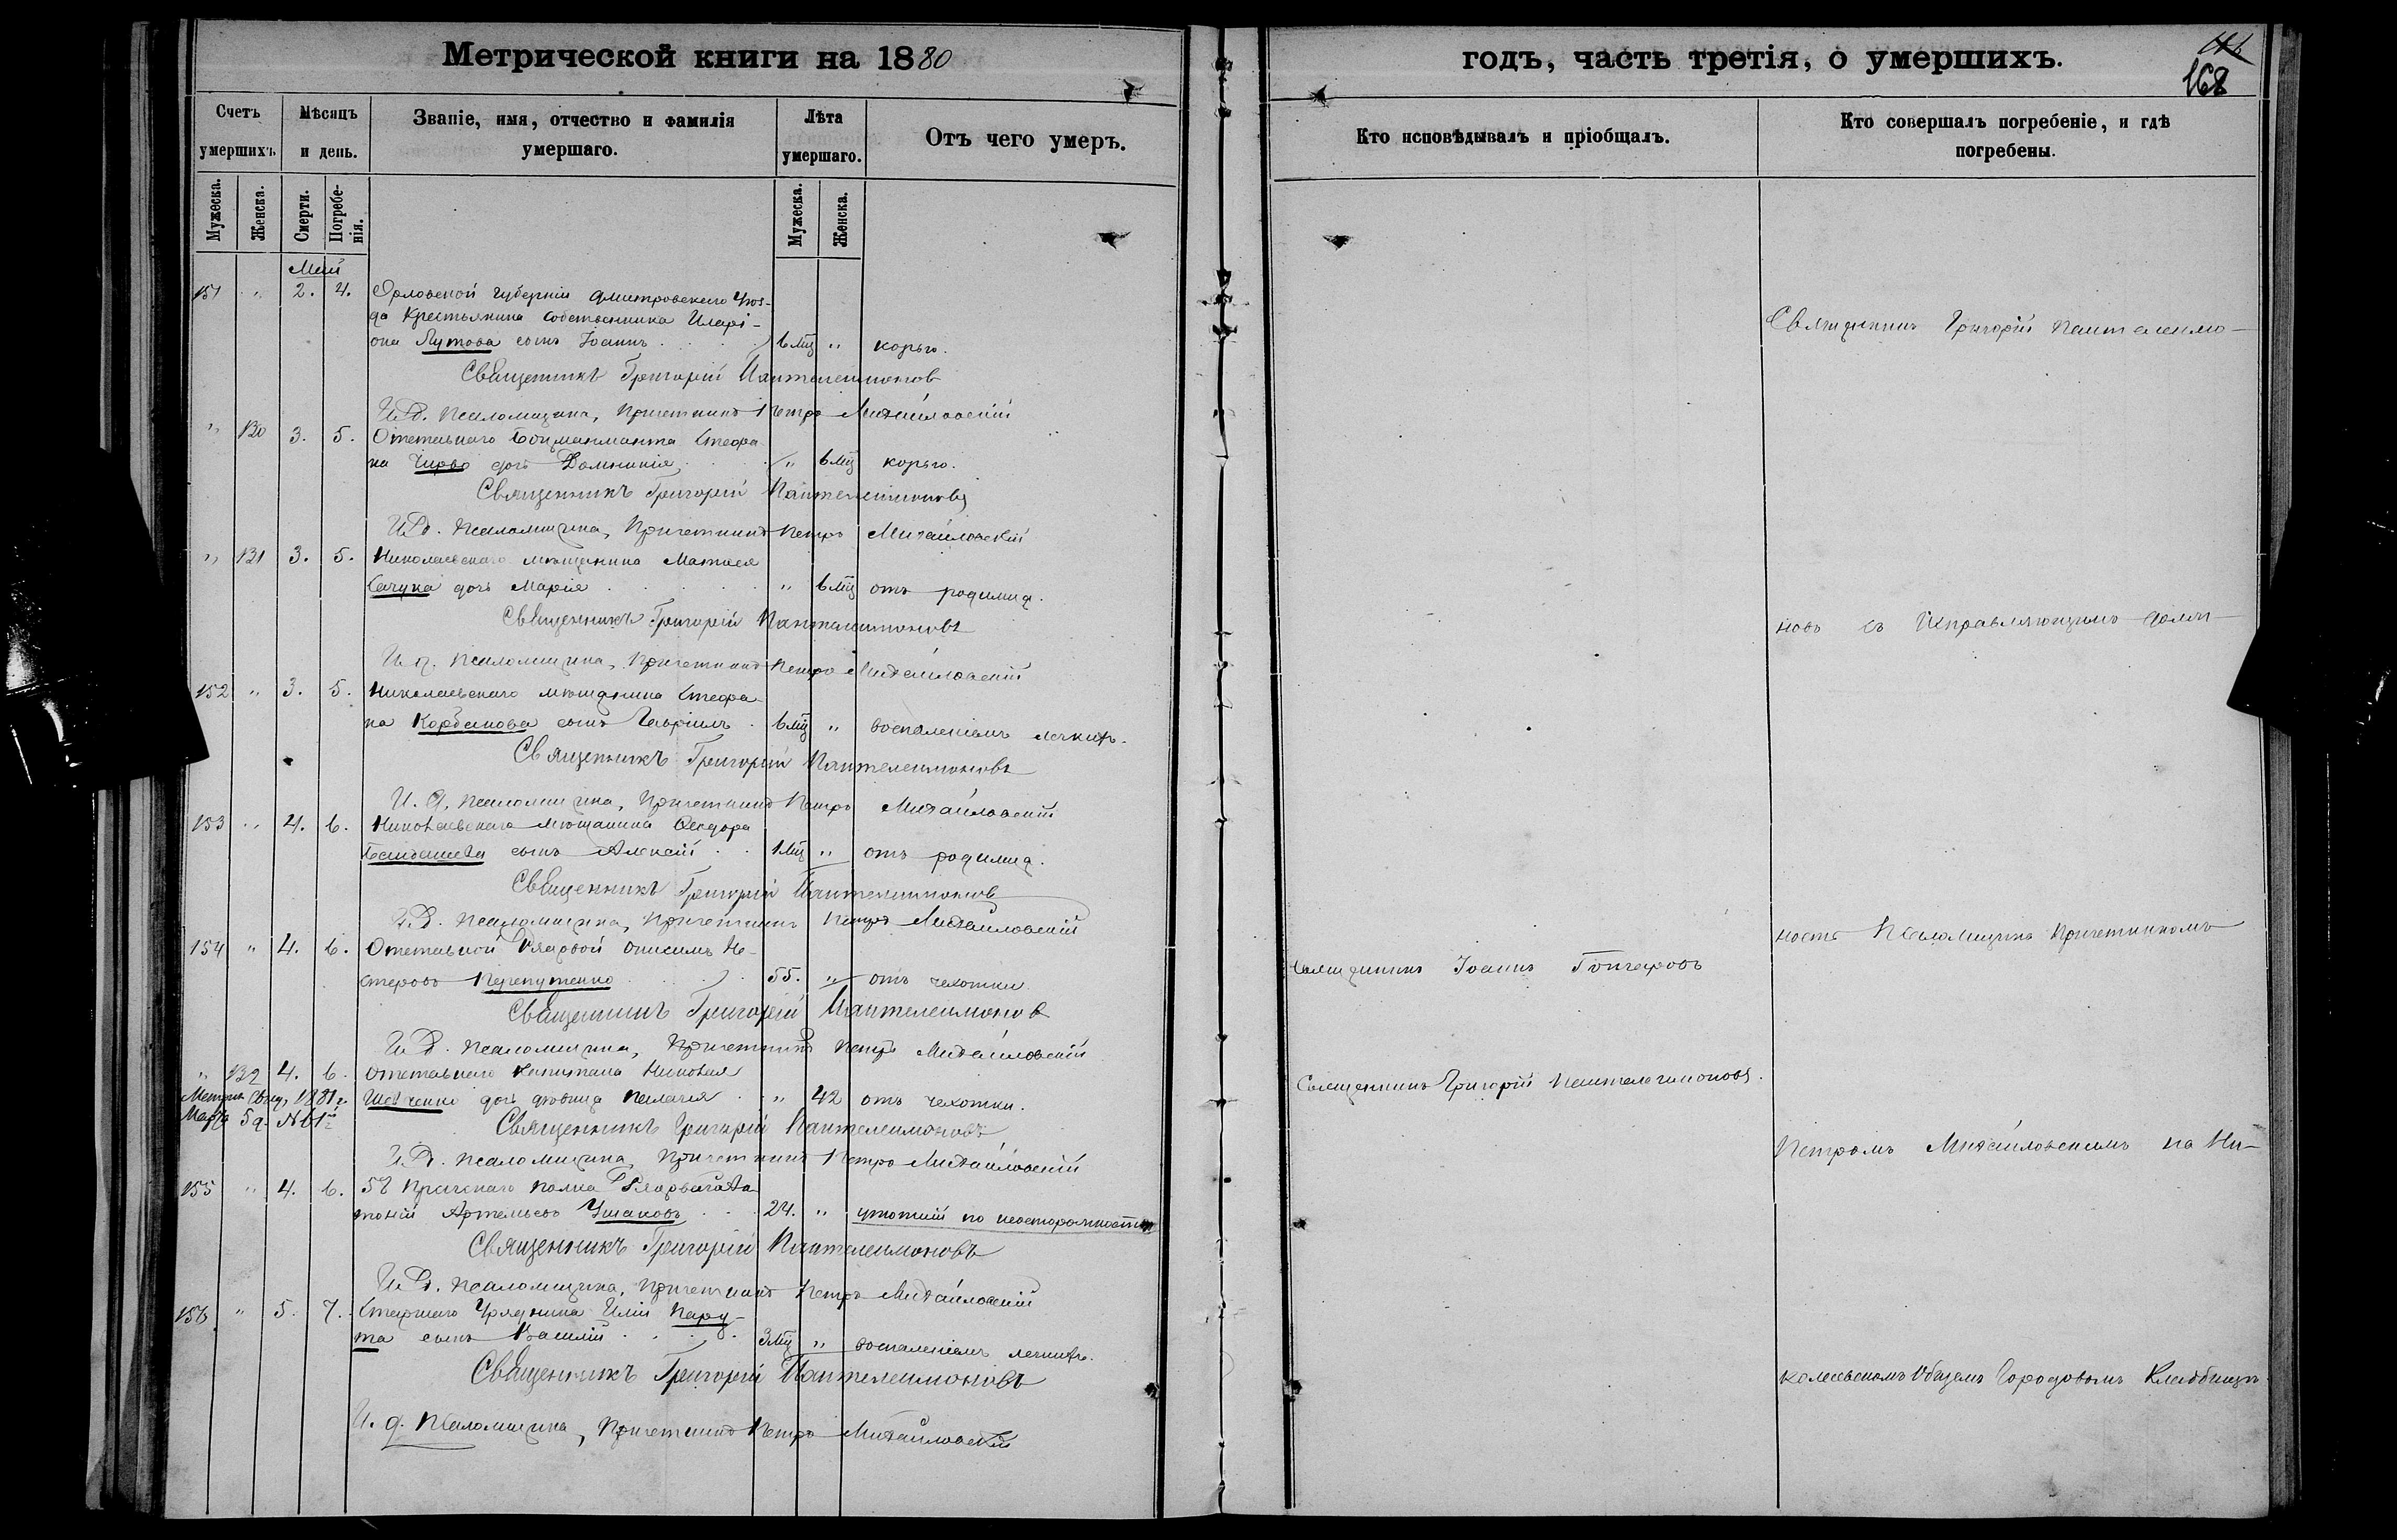 Метрической книги на 1880
Счетъ умершихъ.
Мѣсяцъ и день.
Званіе, имя, отчество и фамилія умершаго.
Лѣта умершаго.
Отъ чего умеръ.
Мужеска.
Женска.
Смерти.
Погребенія.
Мужеска.
Женска.
Май
151 " 2. 4. Орловской губерніи Дмитровскаго Уѣз-
да Крестьянина собственника Иларі-
она Лутова сынъ Іоаннъ 6 мц " корью.
Священникъ Григорій Пантелеимонов
И. д. Псаломщика, Причетникъ Петръ Михайловскій
" 130 3. 5. Отставного Боцманмата Стефа-
на дочь Домникія " 6 мц корью.
Священникъ Григорій Пантелеимоновъ
И. д. Псаломщика, Причетникъ Петръ Михайловскій
" 131 3. 5. Николаевскаго мѣщанина Матѳея
дочь Марія " 6 мц отъ родимца.
Священникъ Григорій Пантелеимоновъ
И. д. Псаломщика, Причетникъ Петръ Михайловскій
152 " 3. 5. Николаевскаго мѣщанина Стефа-
на Корбакова сынъ Гавріилъ 6 мц " воспаленіемъ легкихъ.
Священникъ Григорій Пантелеимоновъ
И. д. Псаломщика, Причетникъ Петръ Михайловскій
153 " 4. 6. Николаевскаго мѣщанина Ѳеодора
сынъ Алексій 1 мц " отъ родимца.
Священникъ Григорій Пантелеимонов
И. д. Псаломщика, Причетникъ Петръ Михайловскій
154 " 4. 6. Отставной Рядовой Онисимъ Не-
стеровъ Перепутенко 55. " отъ чахотки.
Священникъ Григорій Пантелеимонов
И. д. Псаломщика, Причетникъ Петръ Михайловскій
" 132 4. 6. Отставного Капитана Николая
Метрич. Свид. 1881 г.
Шевченко дочь дѣвица Пелагія " 42 отъ чахотки.
Марта 5 д. № 61
Священникъ Григорій Пантелеимоновъ
И. д. Псаломщика, Причетникъ Петръ Михайловскій
155 " 4. 6. 58 Пражскаго полка Рядовой Ан-
тоній Артемьевъ Ушаковъ 24. " утопшій по неосторожности
Священникъ Григорій Пантелеимоновъ
И. д. Псаломщика, Причетникъ Петръ Михайловскій
156 " 5. 7. Старшаго Урядника Иліи Пару-
та сынъ Василій 3 мц " воспаленіемъ легкихъ.
Священникъ Григорій Пантелеимоновъ
И. д. Псаломщика, Причетникъ Петръ Михайловскій
годъ, часть третія, о умершихъ.
168
Кто исповѣдывалъ и пріобщалъ.
Кто совершалъ погребеніе, и гдѣ погребены.
Священникъ Григорій Пантелеимо-
новъ съ Исправляющимъ долж-
ность Псаломщика Причетникомъ
Священникъ Іоаннъ Гончаровъ
Священникъ Григорій Пантелеимоновъ.
Петромъ Михайловскимъ на Ни-
колаевскомъ Общемъ Городовомъ Кладбищѣ.